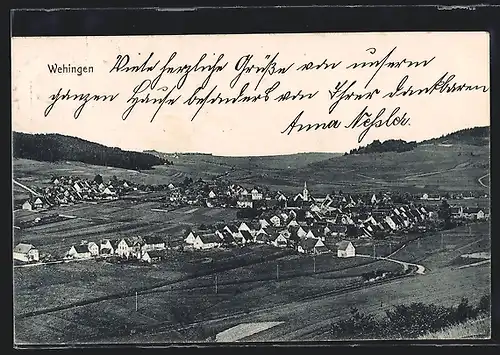 Wehingen
Viele herzliche Grüße von unserm
ganzen Hause besonders von Ihrer dankbaren
Anna Neßler.